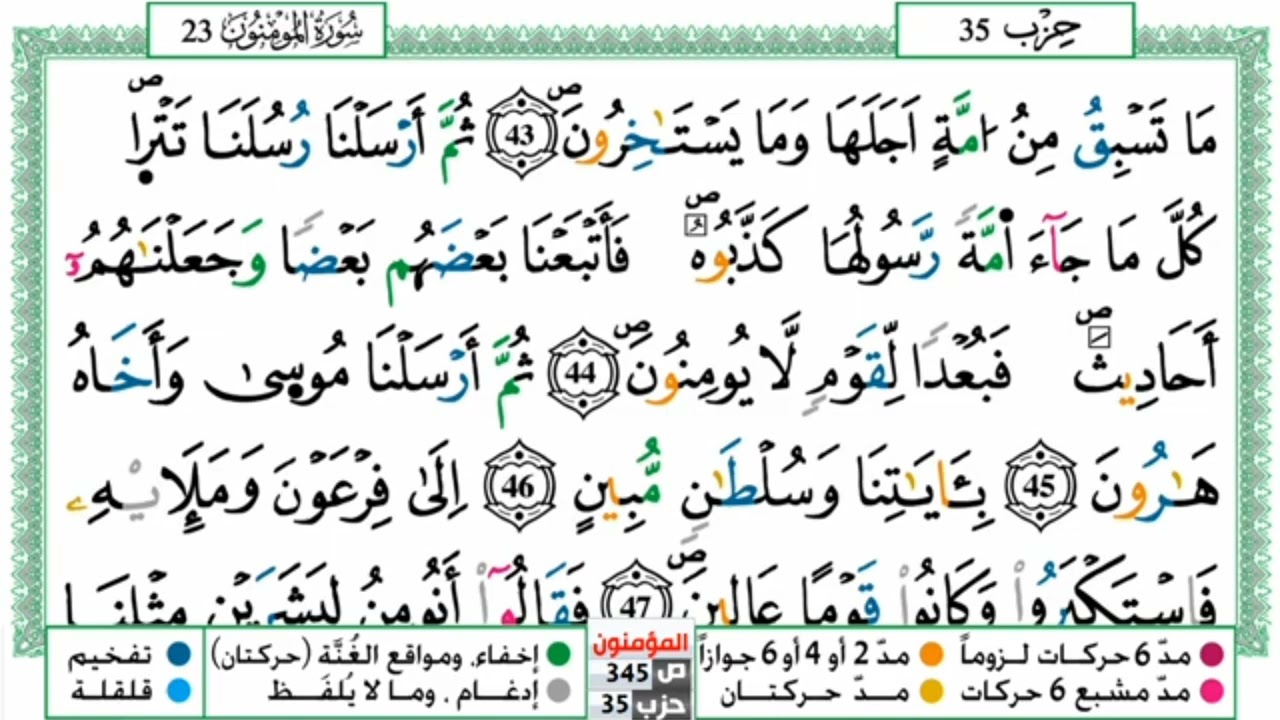 حِزْب 35
سُورَةُ الْمُؤْمِنُونَ 23
مَا تَسْبِقُ مِنُ امَّةٍ اَجَلَهَا وَمَا يَسْتَـٰخِرُونَ ۖ 43 ثُمَّ أَرْسَلْنَا رُسُلَنَا تَتْر۪اۖ
كُلَّ مَا جَآءَ اٰ۬مَّةً رَّسُولُهَا كَذَّبُوهُۖ فَأَتْبَعْنَا بَعْضَهُم بَعْضًا وَجَعَلْنَـٰهُمُۥٓ
أَحَادِيثَۖ فَبُعْدًا لِّقَوْمٍ لَّا يُومِنُونَۖ 44 ثُمَّ أَرْسَلْنَا مُوس۪ىٰ وَأَخَاهُ
هَـٰرُونَ 45 بِـَٔايَـٰتِنَا وَسُلْطَـٰنٍ مُّبِينٍ 46 اِلَىٰ فِرْعَوْنَ وَمَلَإِيْهِۦ
فَاسْتَكْبَرُواْ وَكَانُواْ قَوْمًا عَالِينَۖ 47 فَقَالُوٓاْ أَنُومِنُ لِبَشَرَيْنِ مِثْلِنَا
مدّ 6 حركات لـزوماً مدّ 2 أو 4 أو 6 جوازاً المؤمنون إخفاء، ومواقع الغُنَّة (حركتان) تفخيم
مدّ مشبع 6 حركات مـدّ حـركتـان ص 345 إدغـام ، ومـا لا يُلفَـظ قلقلة
حزب 35